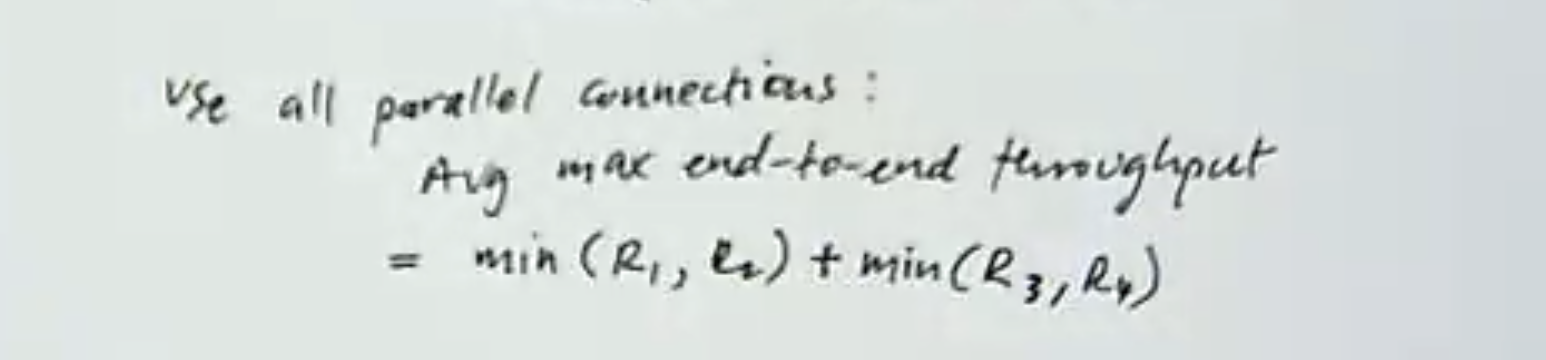 Use all parallel connections :
Avg max end-to-end throughput
= min (R₁, R₂) + min(R₃, R₄)